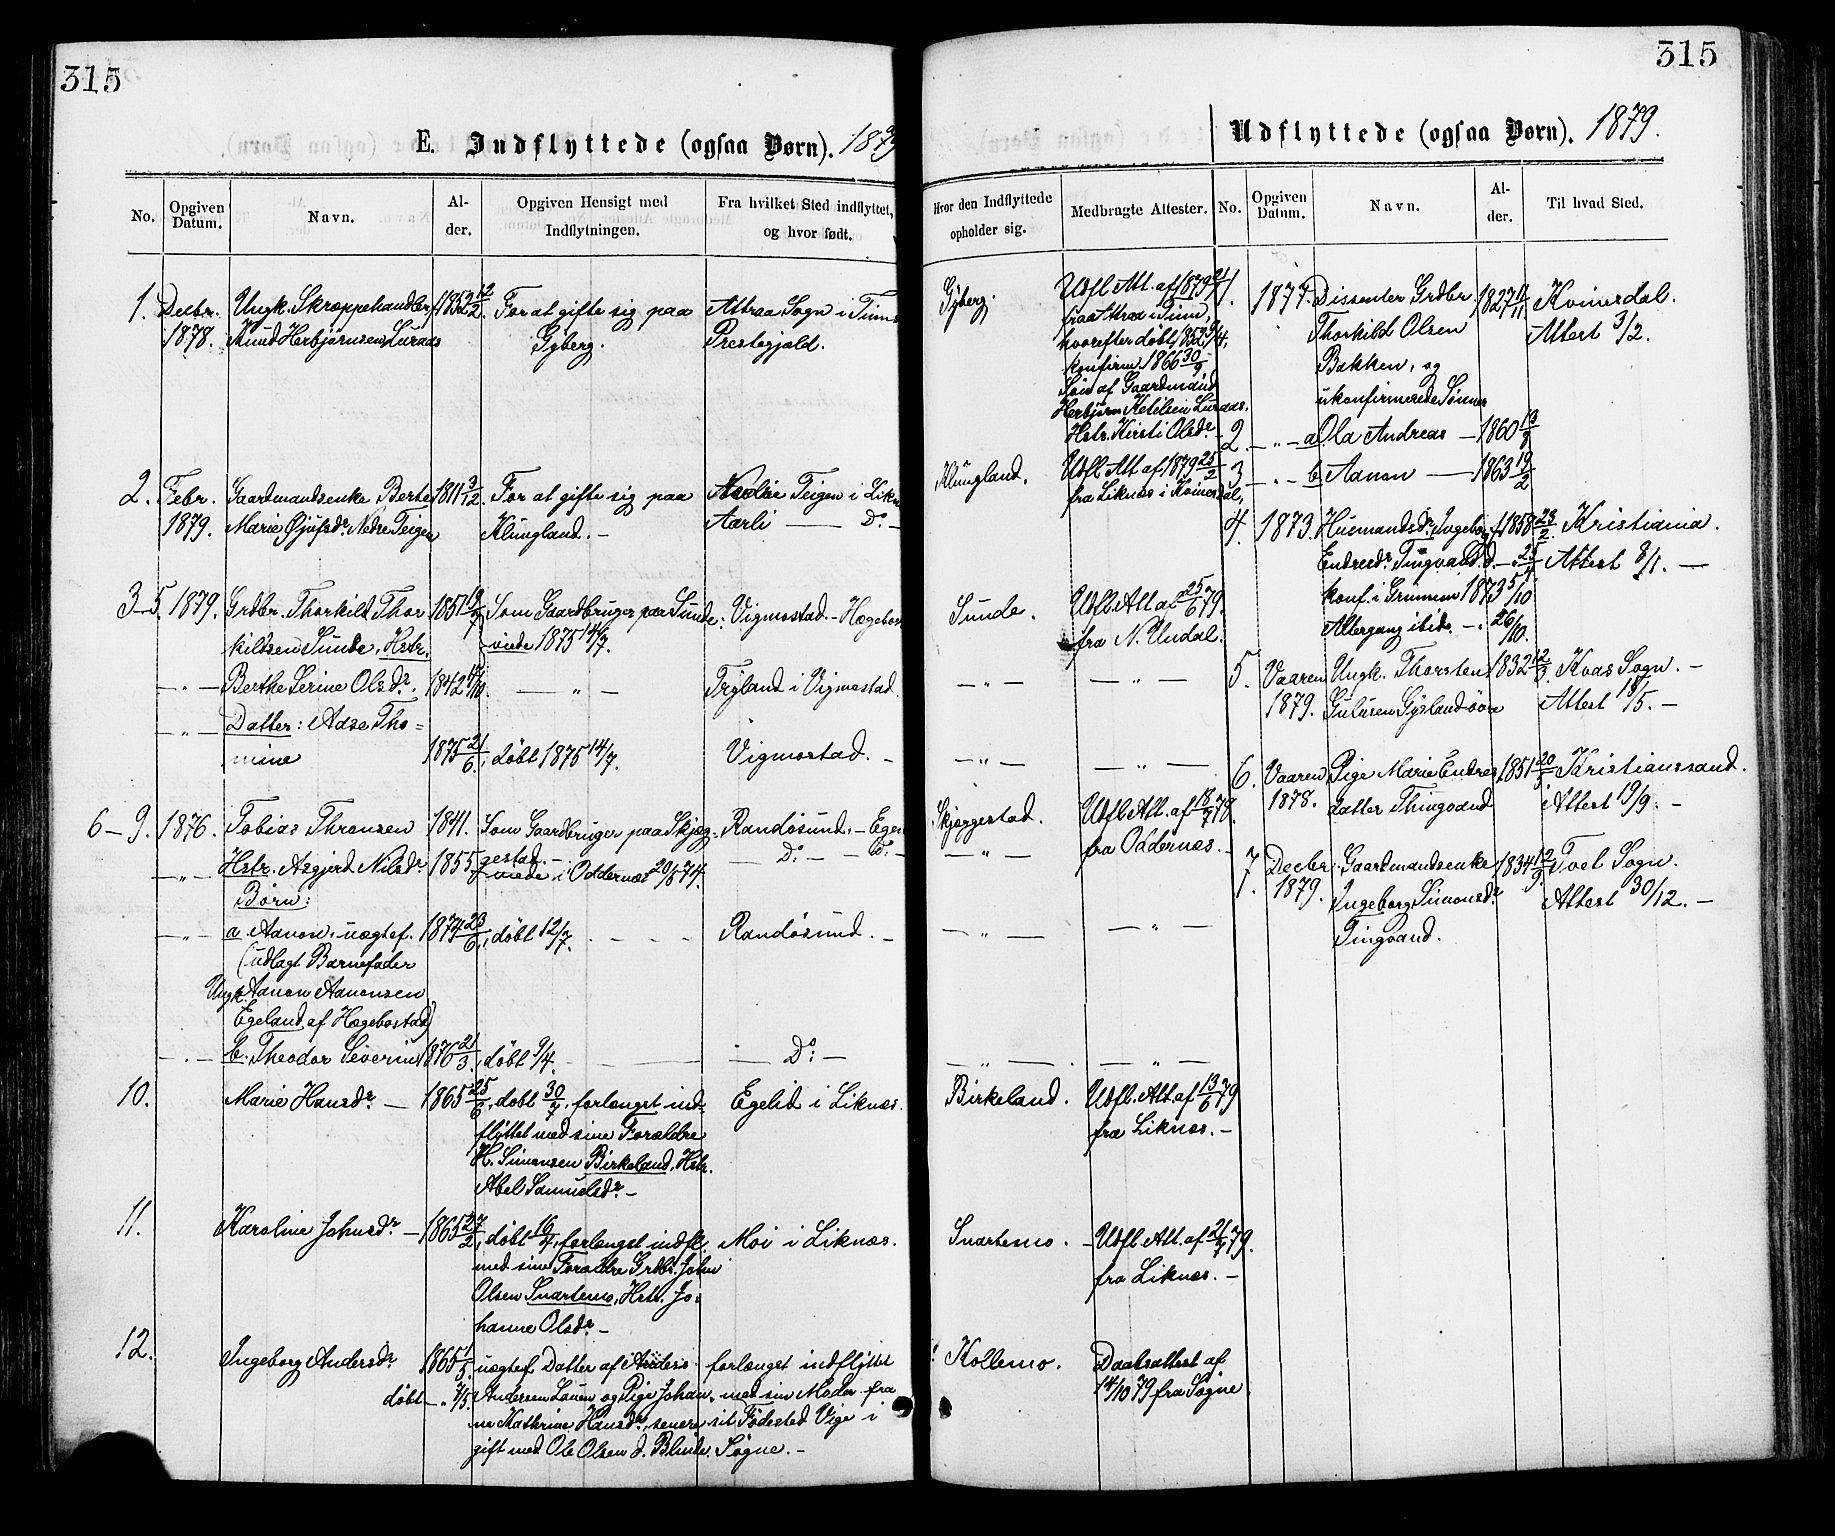 315
E. Indflyttede (ogsaa Børn). 1879
No.
Opgiven Datum.
Navn.
Alder.
Opgiven Hensigt med Indflytningen.
Fra hvilket Sted indflyttet, og hvor født.
1. Decbr. Ungk. Skræppehandler 1852 12/2 For at gifte sig paa Attraa Sogn i Tinns
1878. Knud Herbjørnsen Luraas Gyberg. Prestegjæld.
2. Febr. Gaardmandsenke Berte 1811 3/12 For at gifte sig paa Nedre Teigen i Likn
1879. Marie Øjufsdr. Nedre Teigen Klungland. - Aarli — Do. -
3-5. 1879. Grdbr. Thorkild Thor 1851 Som Gaardbruger paa Sunde: Vigmostad. - Hægebost
kildsen Sunde, Hstr. viede 1875 14/7.
— „ — Berthe Serine Olsdr. 1842 17/10 — „ — Trÿland i Vigmostad.
— „ — Datter: Adse Tho-
mine 1875 21/6, døbt 1875 14/7. Vigmostad. -
6-9. 1876. Tobias Thronsen 1841. Som Gaardbruger paa Skjæg- Randøsund. - Ege
— „ — Hstr. Asgjerd Nilsdr. 1855 gestad. - — Do. — — Do. -
viede i Oddernæs 20/5 74.
Børn:
— „ — a Aanon. uægtef. 1874 23/6, døbt 12/7. - - - Randøsund. -
(udlagt Barnefader
Ungk. Aanon Aanonsen
Egeland af Hægebostad)
— „ — b. Theodor Severin 1876 21/3, døbt 9/4. — Do. —
10. Marie Hansdr. — 1865 25/6, døbt 30/7, forlængst ind- Egelid i Liknæs.
flÿttet med sine Forældre
H. Simonsen Birkeland, Hstr.
Abel Samuelsdr. -
11. Karoline Johnsdr — 1865 27/2, døbt 16/4, forlængst indfl. Moi i Liknæs.
med sine Forældre Grdbr. John
Olsen Snartemo, Hstr. Jo-
hanne Olsdr. -
12. Ingeborg Andersdr 1865 1/5 uægtef. Datter af Anders forlængst indflÿttet
døbt — „ 7/5 Andersen Lauen og Pige Johan- med sin Moder fra
ne Kathrine Hansdr., senere sit Fødested Vige i
gift med Ole Olsen d. Blinde. Søgne. -
315
Udflyttede (ogsaa Børn). 1879.
Hvor den Indflyttede opholder sig.
Medbragte Attester.
No.
Opgiven Datum.
Navn.
Alder.
Til hvad Sted.
Gÿberg. Udfl. Att. af 1879 21/1
fra Attraa i Tinn,
hvorefter døbt 1852 9/4,
konfirm 1866 30/9
Søn af Gaardmand
Herbjørn Ketilsen Luraas,
Hstr. Kirsti Olsdr. -
Klungland. Udfl. Att. af 1879 25/2
fra Liknæs i Kvinesdal,
Sunde. Udfl. Att. af 25/6 79.
fra N. Undal.
— „ — — „ —
— „ — — „ —
Skjeggestad. Udfl. Att. af 18/7 78.
— „ — fra Oddernæs. -
— „ — — „ —
— „ — — „ —
Birkeland. Udfl. Att. af 13/6 79
fra Liknæs. -
Snartemo. - Udfl. Att. af 21/7 79.
fra Liknæs. -
Kollemo. Daabsattest af
14/10 79 fra Søgne
1. 1877. Dissenter Grdbr. 1827 11/11 Kvinesdal.
Thorkild Olsen Attest 3/2.
Bakken, og
ukonfirmerede Sønner
2. — „ — a Ola Andreas — 1860
3 — „ — b. Aanon — 1863 19/2
4. 1873. Husmandsdr. Ingeborg f. 1858 23/2. Kristiania.
Endresdr. Tingvand. d. - „ 25/4 Attest 8/1. —
konf. i Grinnem 1873 5/10
Altergang ibid. - „ 26/10.
5. Vaaren Ungk. Thorsten 1832 12/3. Kvas Sogn. -
1879. Gulufsen Gÿsland øvre Attest 18/5. -
6. Vaaren Pige Marie Endres 1851 20/3 Kristianssand.
1878. datter Thingvand Attest 19/9. -
7 Decbr. Gaardmandsenke 1834 12/9. Tvet Sogn.
1. 1879. Ingeborg Simonsdr. Attest 30/12. -
Tingvand.